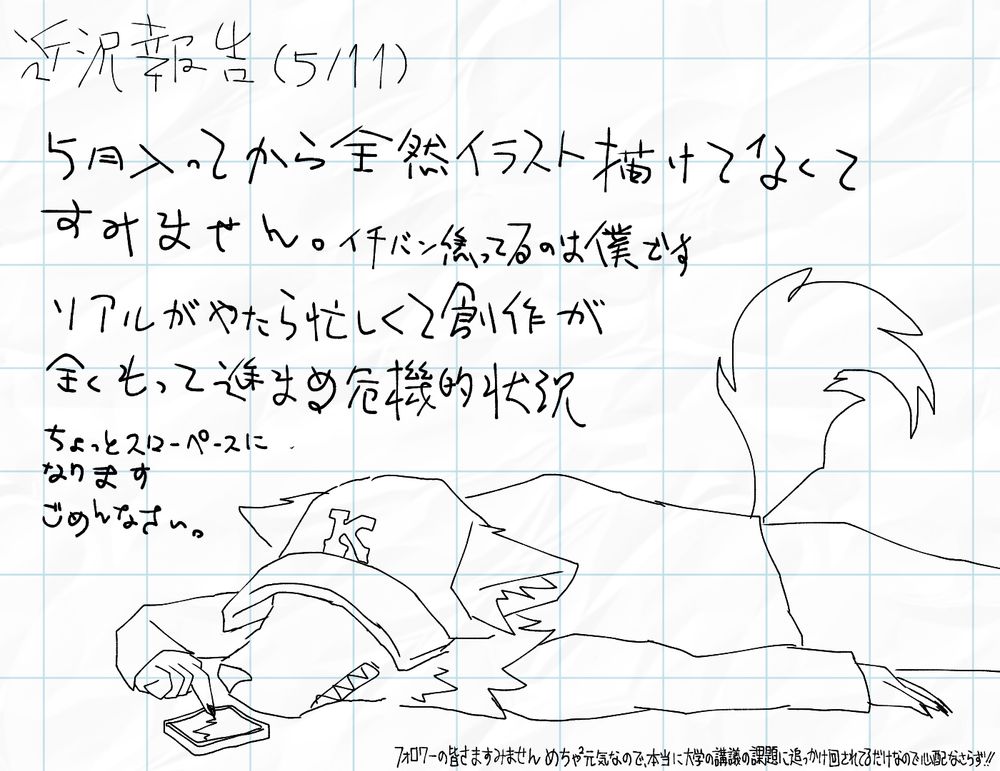 近況報告(5/11)
5月入ってから全然イラスト描けてなくて
すみません。イチバン焦ってるのは僕です
リアルがやたら忙しくて創作が
全くもって進まぬ危機的状況
ちょっとスローペースに
なります
ごめんなさい。
K
フォロワーの皆さますみません めちゃ²元気なので、本当に大学の講義の課題に追っかけ回されてるだけなので心配なさらず!!